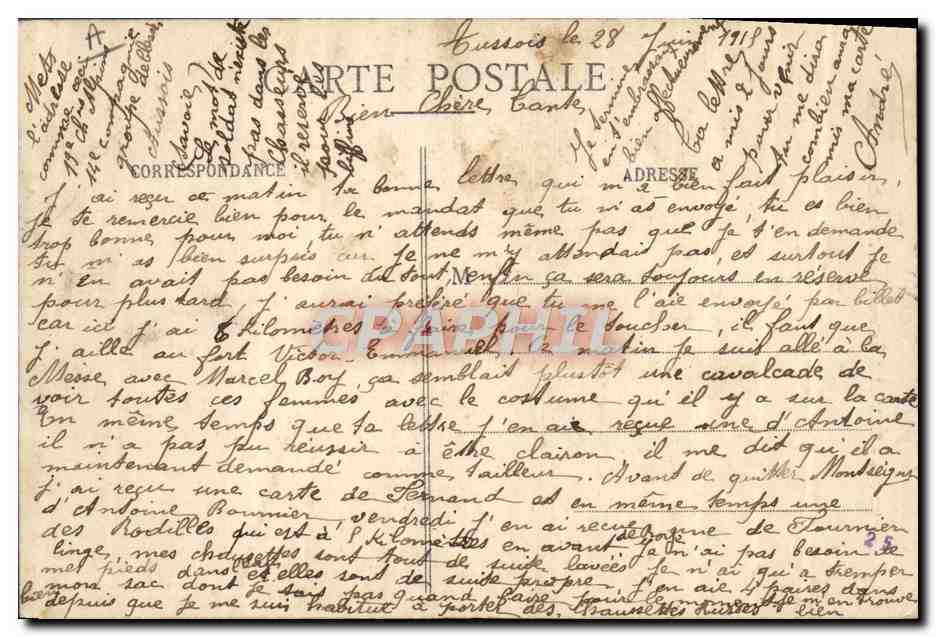 Aussois le 28 Juin 1915
CARTE POSTALE
Bien Chère Tante
CORRESPONDANCE
ADRESSE
J'ai reçu ce matin ta bonne lettre qui m'a bien fait plaisir,
je te remercie bien pour le mandat que tu m'as envoyé, tu es bien
trop bonne pour moi, tu n'attends même pas que je t'en demande
tu m'as bien surpris car je ne m'y attendais pas, et surtout je
n'en avait pas besoin du tout, enfin ça sera toujours en réserve
M
pour plus tard, j'aurai préféré que tu me l'aie envoyé par billet
car ici j'ai 8 kilomètres à faire pour le toucher, il faut que
j'aille au fort Victor Emmanuel, ce matin je suis allé à la
Messe avec Marcel Boy, ça semblait plustôt une cavalcade de
voir toutes ces femmes avec le costume qu'il y a sur la carte
En même temps que ta lettre j'en aie reçue une d'Antoine
il n'a pas pu réussir à être clairon il me dit qu'il a
maintenant demandé comme tailleur. Avant de quitter
j'ai reçu une carte de Fernand et en même temps une
d'Antoine, vendredi j'en ai reçue une de Fournier
des Rodilles qui est à 8 kilomètres en avant je n'ai pas besoin de
linge, mes chaussettes sont tout de suite lavées je n'ai qu'à tremper
mes pieds dans l'eau et elles sont de suite propre j'en aie 4 paires dans
mon sac dont je sais pas quand faire
depuis que je me suis habitué à porter des chaussettes
bien
25
A
Mets
l'adresse
comme ceci
14e compagnie
groupe de
Aussois
Savoie
le mot de
soldat n'existe
pas dans les
chasseurs
il reserve
pour
Je termine
en t'embrassant
bien affectueusement
Ta lettre
a mis 2 jours
pour venir
tu me diras
combien aura
mis ma carte
André
CPAPHIL